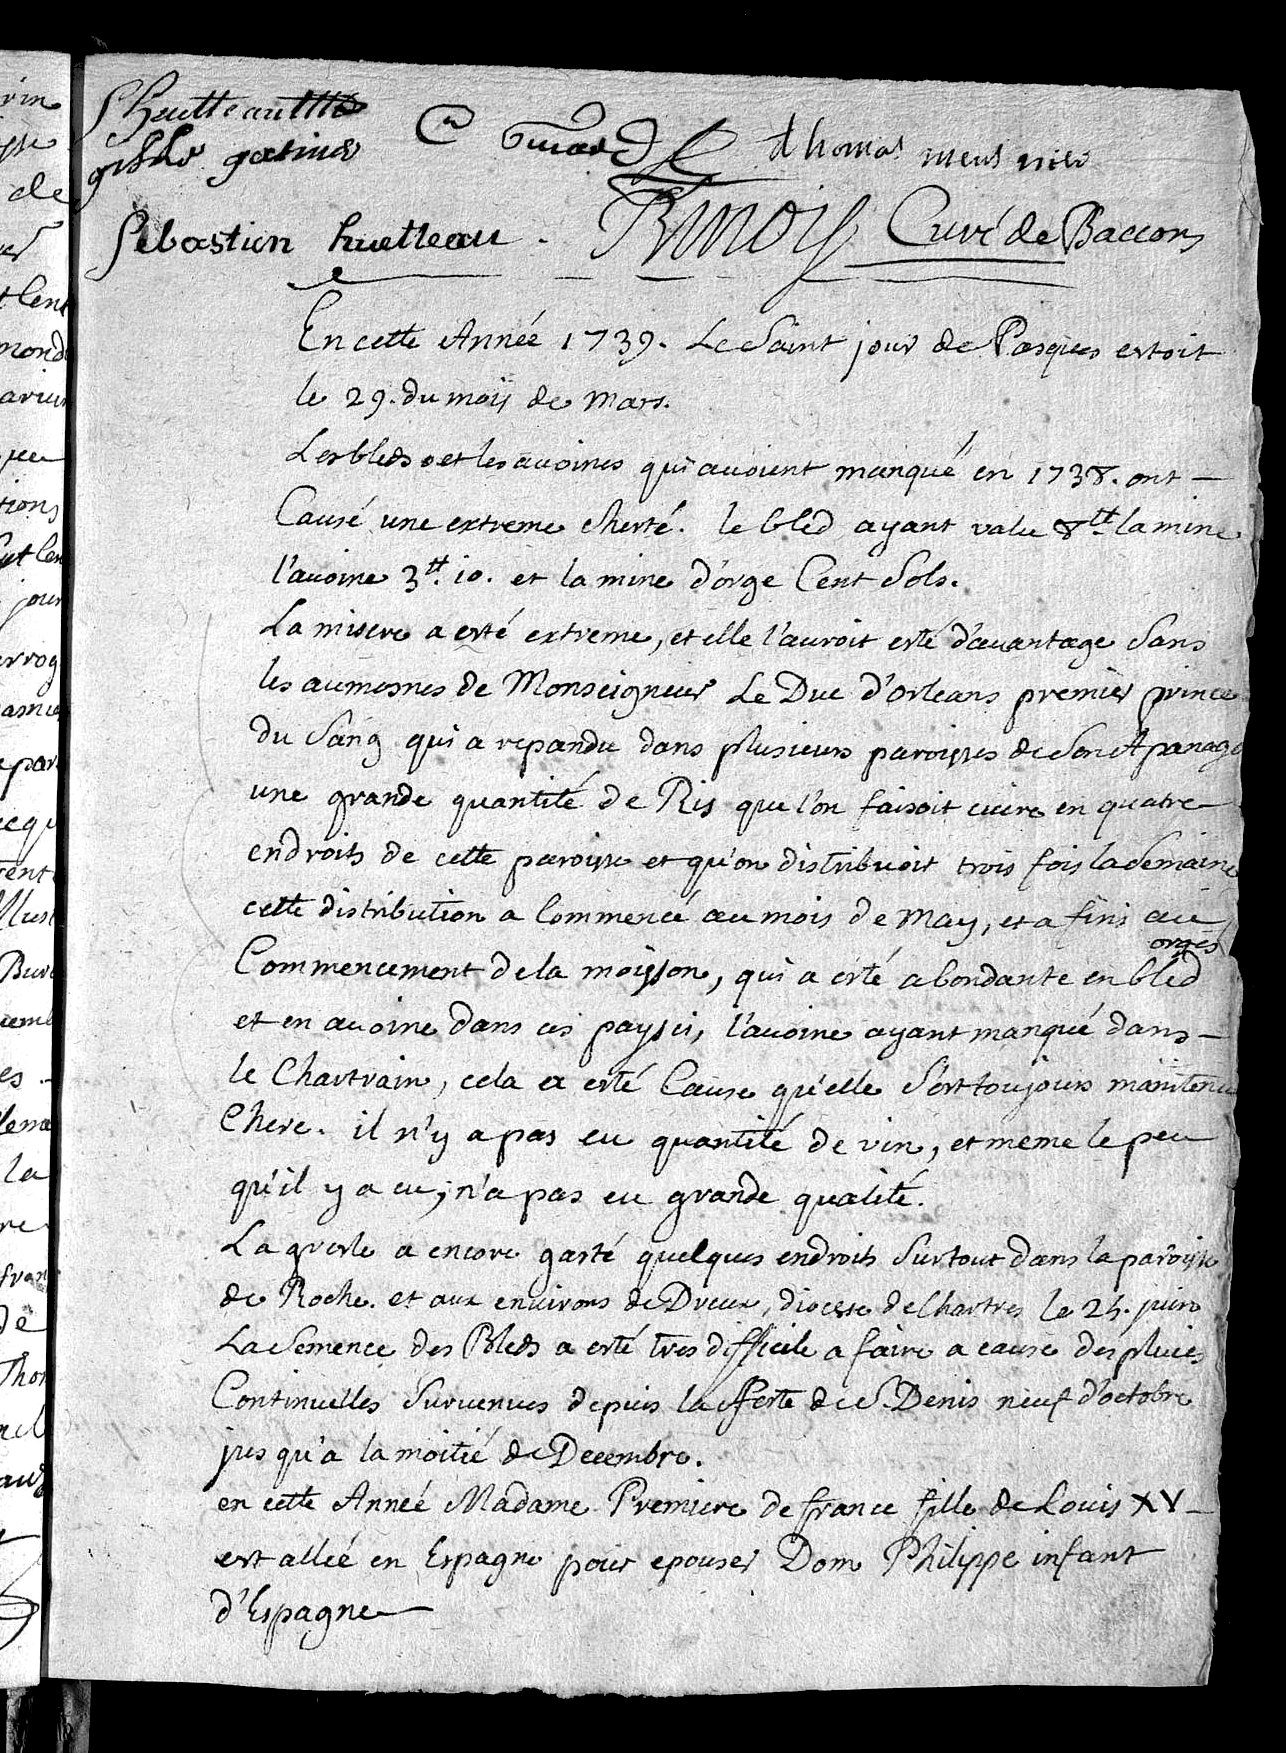 Shuetteau
gatinos
Thomas meusnier
Sebastien huetteau. Curé de Baccons
En cette Année 1739. Le Saint jour de Pasques estoit
le 29. du mois de Mars.
Les bleds et les avoines qui avoient manqué en 1738. ont –
Causé une extreme cherté. le bled ayant valu 8tt. la mine
l'avoine 3tt. 10. et la mine d'orge Cent Sols.
La misere a esté extreme, et elle l'auroit esté d'avantage Sans
les aumosnes de Monseigneur Le Duc d'Orleans premier prince
du Sang qui a repandu dans plusieurs paroisses de Son Apanage
une grande quantité de Ris que l'on faisoit cuire en quatre
endroits de cette paroisse et qu'on distribuoit trois fois la Semaine
cette distribution a Commencé au mois de May, et a fini au
orges
Commencement de la moisson, qui a esté abondante en bled
et en avoine dans ces pays ci, l'avoine ayant manqué dans –
le Chartrain, cela a esté Cause qu'elle S'est toujours maintenu
Chere. il n'y a pas eu quantité de vin, et meme le peu
qu'il y a eu, n'a pas eu grande qualité.
La gresle a encore gasté quelques endroits Surtout dans la paroisse
de Roche. et aux environs de Dreux, diocese de Chartres le 24. juin
La Semence des Bleds a esté tres difficile a faire a cause des pluies
Continuelles Survenues depuis la feste de S. Denis neuf d'octobre
jusqu'a la moitié de Decembre.
en cette Année Madame Premiere de france fille de Louis XV –
est allée en Espagne pour epouser Dom Philippe infant
d'Espagne